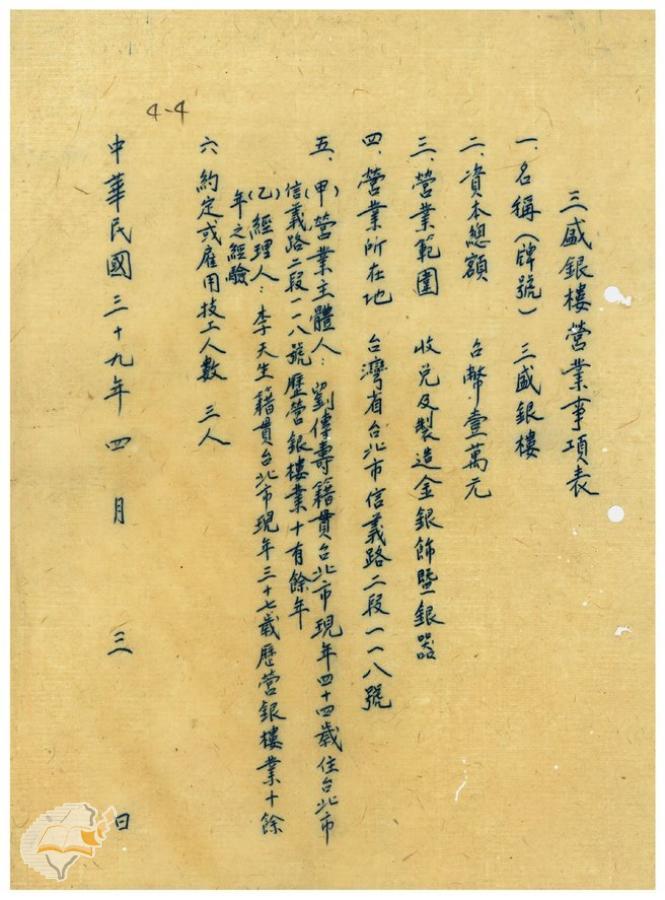 三盛銀樓營業事項表
一、名稱(牌號) 三盛銀樓
二、資本總額 台幣壹萬元
三、營業範圍 收兌及製造金銀飾暨銀器
四、營業所在地 台灣省台北市信義路二段一一八號
五、(甲)營業主體人：劉傳壽籍貫台北市現年四十四歲住台北市
信義路二段一一八號歷營銀樓業十有餘年
(乙)經理人：李天生籍貫台北市現年三十七歲歷營銀樓業十餘
年之經驗
六、約定或雇用技工人數 三人
中華民國三十九年四月三日
4-4